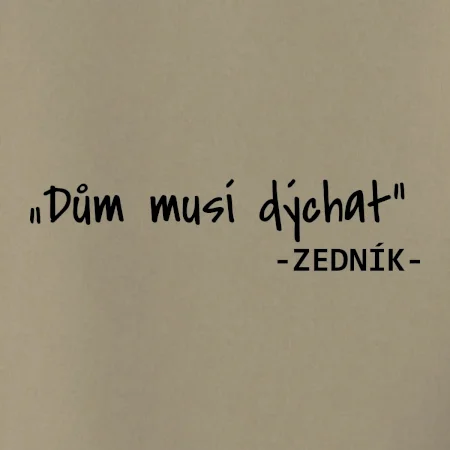 „Dům musí dýchat"
-ZEDNÍK-